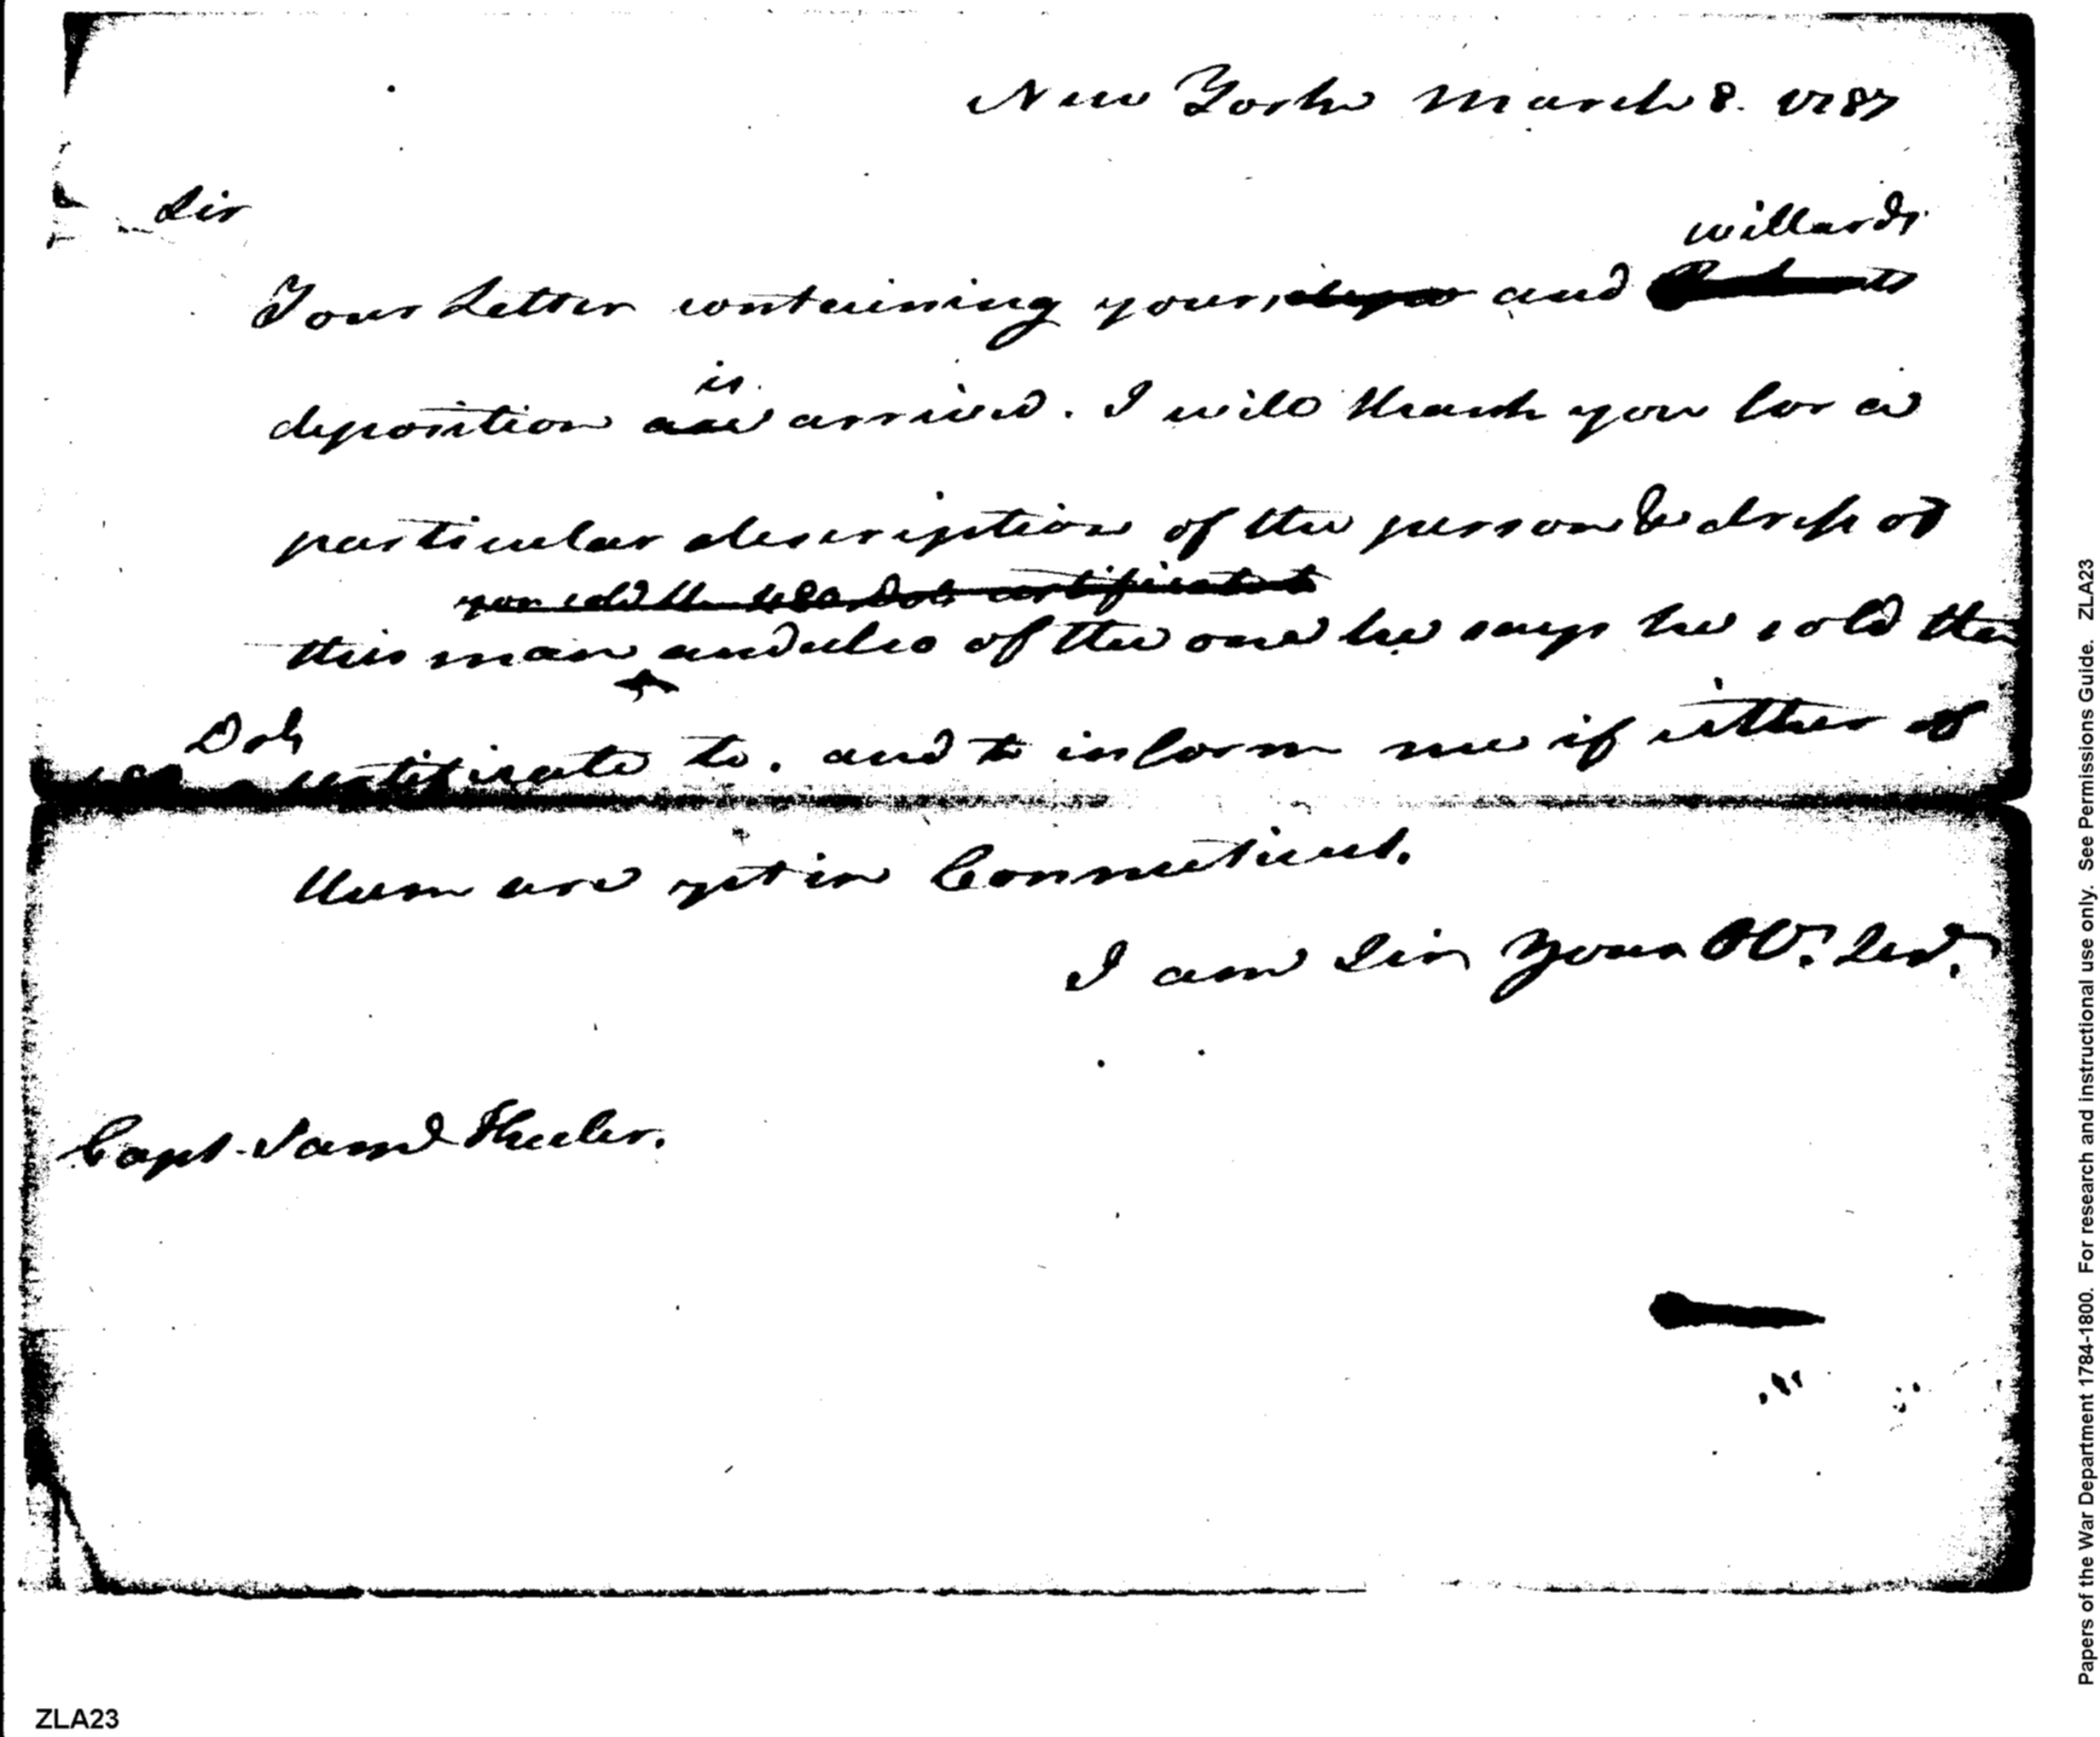 New York March 8. 1787
Sir
willards
Your Letter containing your and
is
deposition are arrived. I will thank you for a
particular description of the person & dress of
you sold the certificate to
this man and also of the one he says he sold the
Dols
certificate to. and to inform me if either of
them are yet in Connecticut.
I am Sir Your Ob. Ser.
Capt. Saml Wheeler.
ZLA23
Papers of the War Department 1784-1800. For research and instructional use only. See Permissions Guide. ZLA23